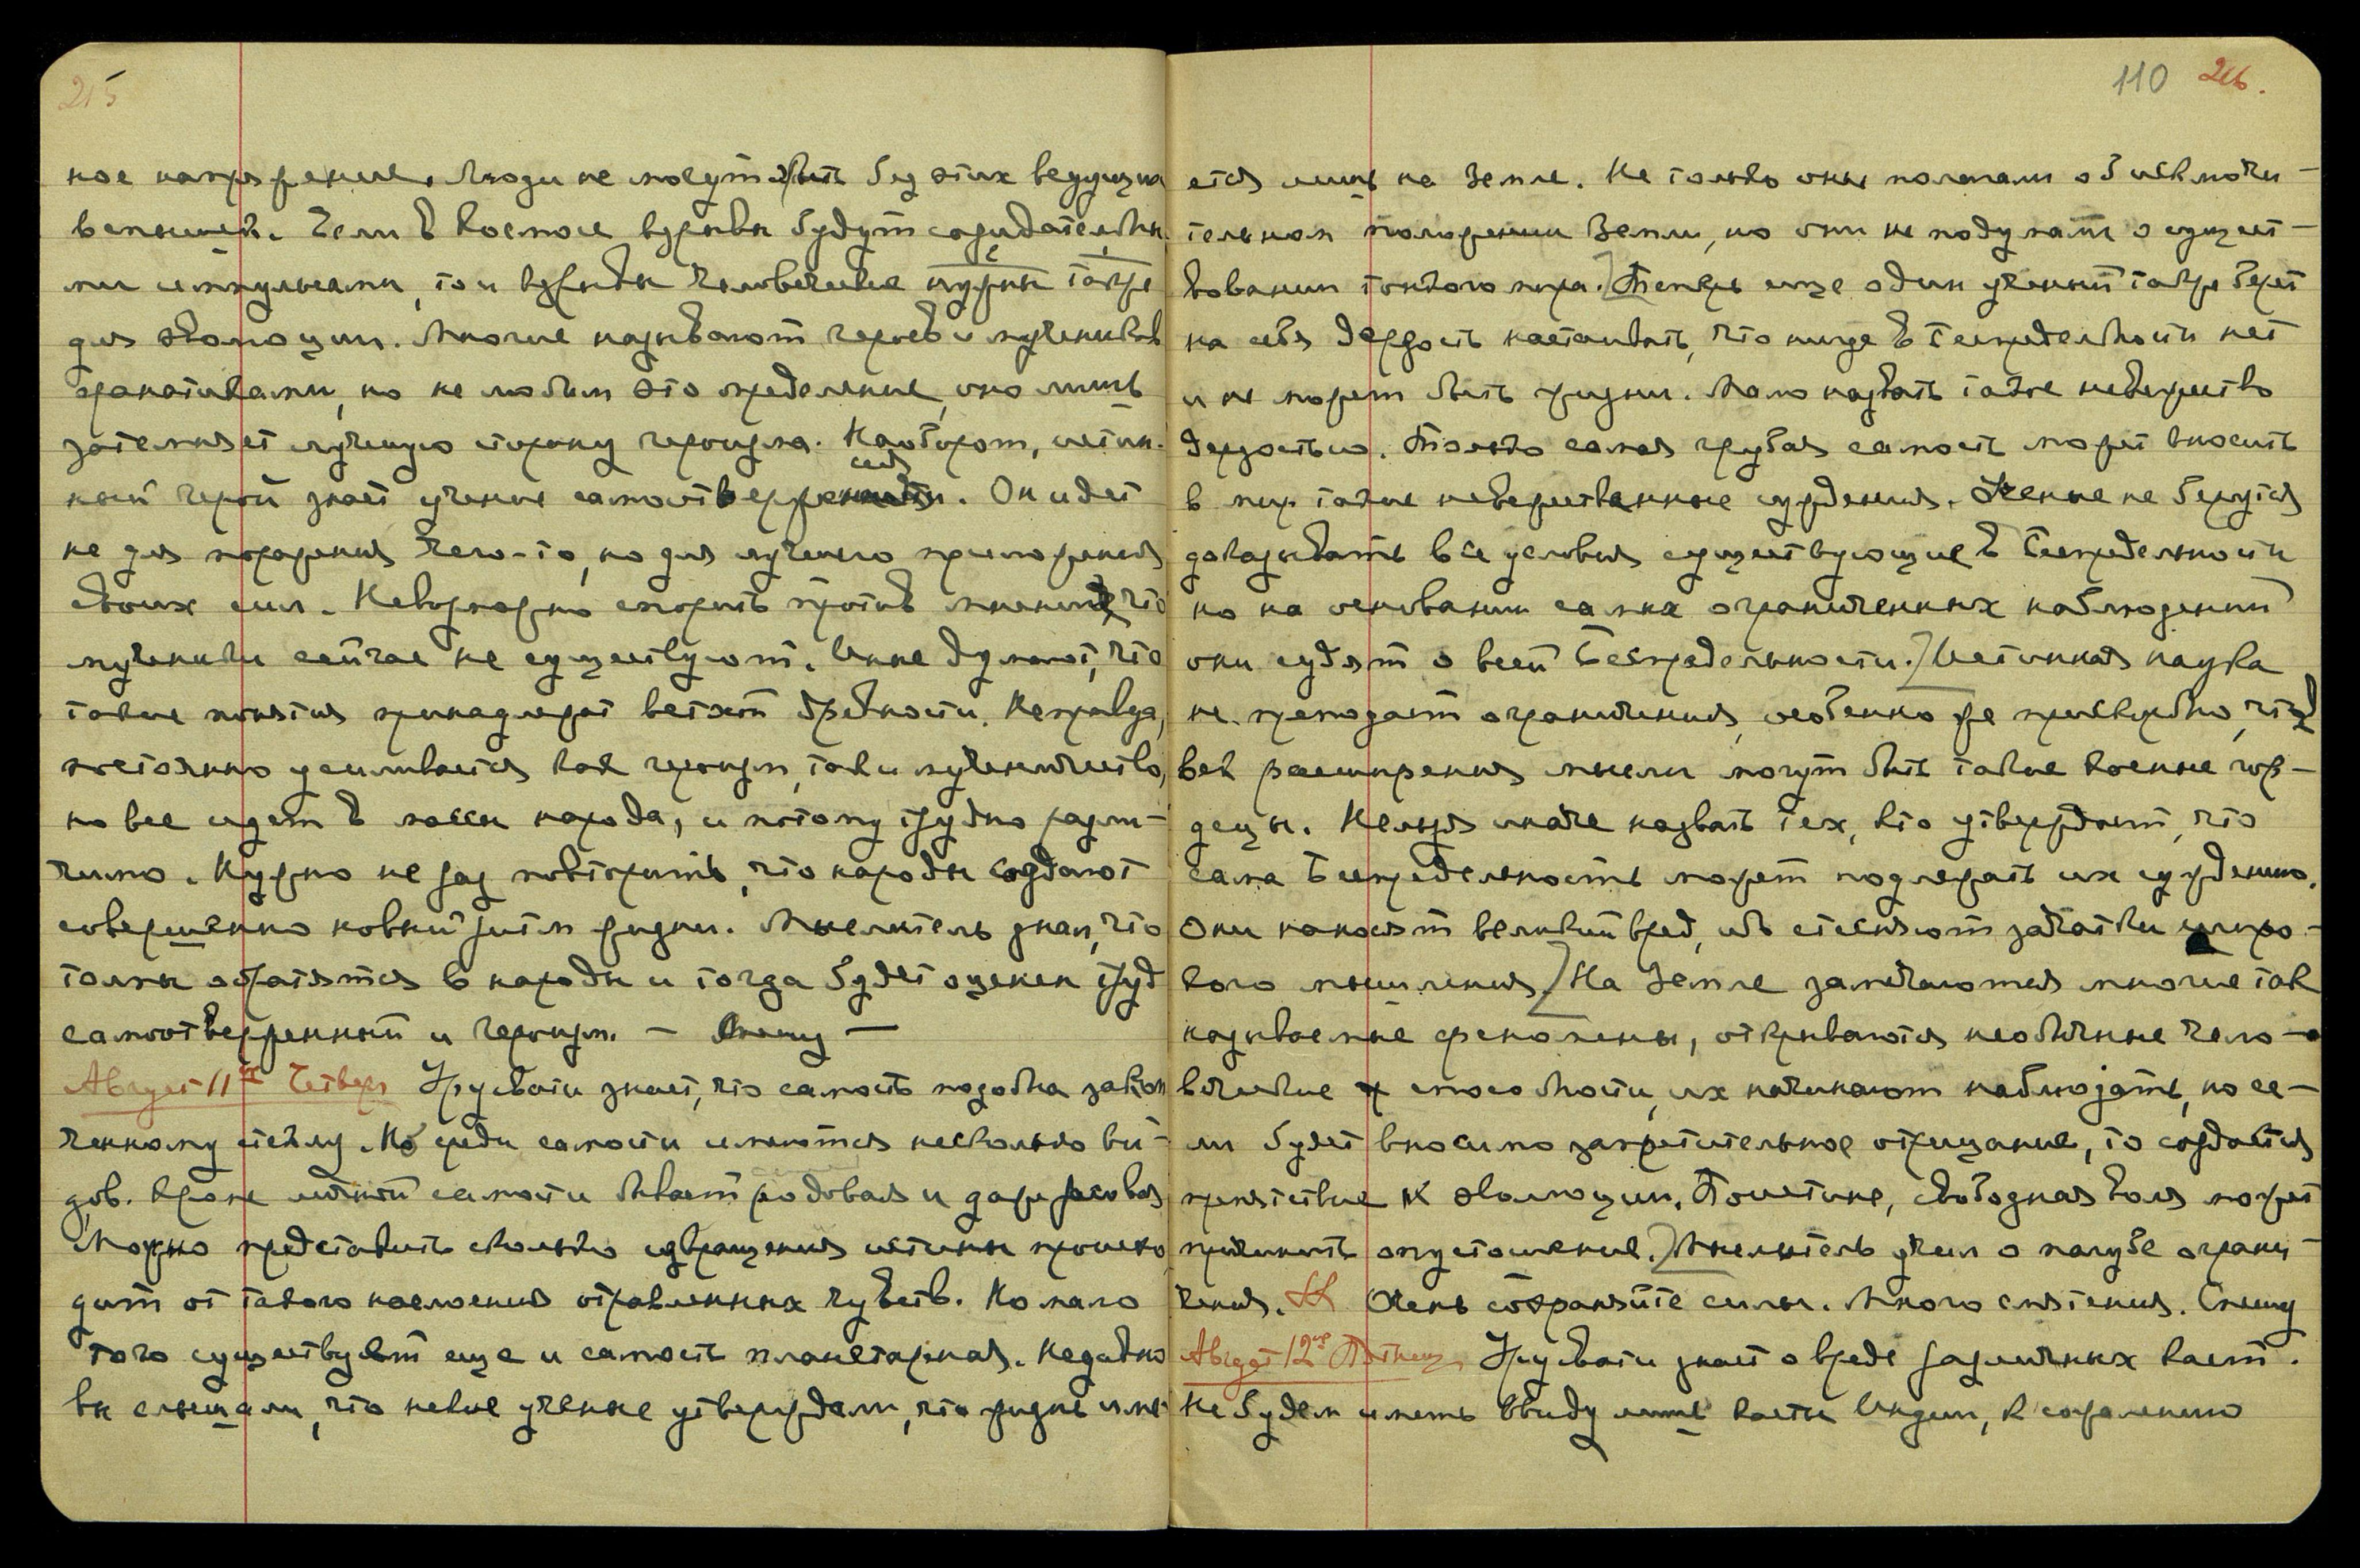 215
ное напряжение. Люди не могут жить без этих ведущих
вспышек. Если в Космосе взрывы будут созидательны-
ми импульсами, то и взрывы человеческие нужны также
для эволюции. Многие называют героев и мучеников
фанатиками, но не любим это определение, оно лишь
затемняет лучшую сторону героизма. Наоборот, истин-
ный герой знает учение самоотвержения. Он идет
не для поражения чего-то, но для лучшего приложения
своих сил. Невозможно спорить против мнения, что
мученики сейчас не существуют. Иные думают, что
такие понятия принадлежат ветхой древности. Неправда,
постоянно усиливается как героизм, так и мученичество,
но все идет в массы народа, и потому трудно разли-
чимо. Нужно не раз повторить, что народы создают
совершенно новый ритм жизни. Мыслитель знал, что
толпы обратятся в народы и тогда будет оценен труд
самоотверженный и героизм. — Спешу —
Август 11ое Четверг Урусвати знает, что самость подобна закоп-
ченному стеклу. Но среди самости имеются несколько ви-
дов. Кроме личной самости бывает родовая и даже расовая
Можно представить сколько извращения истины происхо-
дит от такого наслоения отравленных чувств. Но мало
того существует еще и самость планетарная. Недавно
вы слышали, что некие ученые утверждали, что жизнь име-
110 216.
ется лишь на Земле. Не только они полагали об исключи-
тельном положении Земли, но они не подумали о сущест-
вовании тонкого мира. Теперь еще один ученый также берет
на себя дерзость настаивать, что нигде в Беспредельности нет
и не может быть жизни. Мало назвать такое невежество
дерзостью. Только самая грубая самость может вносить
в мир такие невежественные суждения. Ученые не берутся
доказывать все условия существующие в Беспредельности
но на основании самых ограниченных наблюдений
они судят о всей Беспредельности. Истинная наука
не преподает ограничения, особенно же прискорбно, что в
век расширения мысли могут быть такие косные гор-
децы. Нельзя иначе назвать тех, кто утверждает, что
сама Беспредельность может подлежать их суждению.
Они наносят великий вред, ибо стесняют зачатки широ-
кого мышления. На Земле замечаются многие так
называемые феномены, открываются необычные чело-
веческие способности, их начинают наблюдать, но ес-
ли будет вносимо запретительное отрицание, то создастся
препятствие к эволюции. Поистине, свободная воля может
причинить опустошение. Мыслитель учил о пагубе ограни-
чения. Очень сохраняйте силы. Много смятения. Спешу
Август 12ое Пятница. Урусвати знает о вреде различных каст.
Не будем иметь ввиду лишь касты Индии, к сожалению